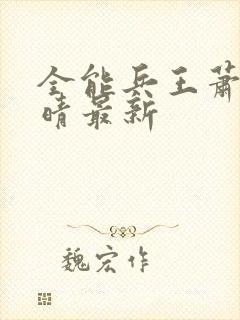 全能兵王萧
晴最新
魏宏作